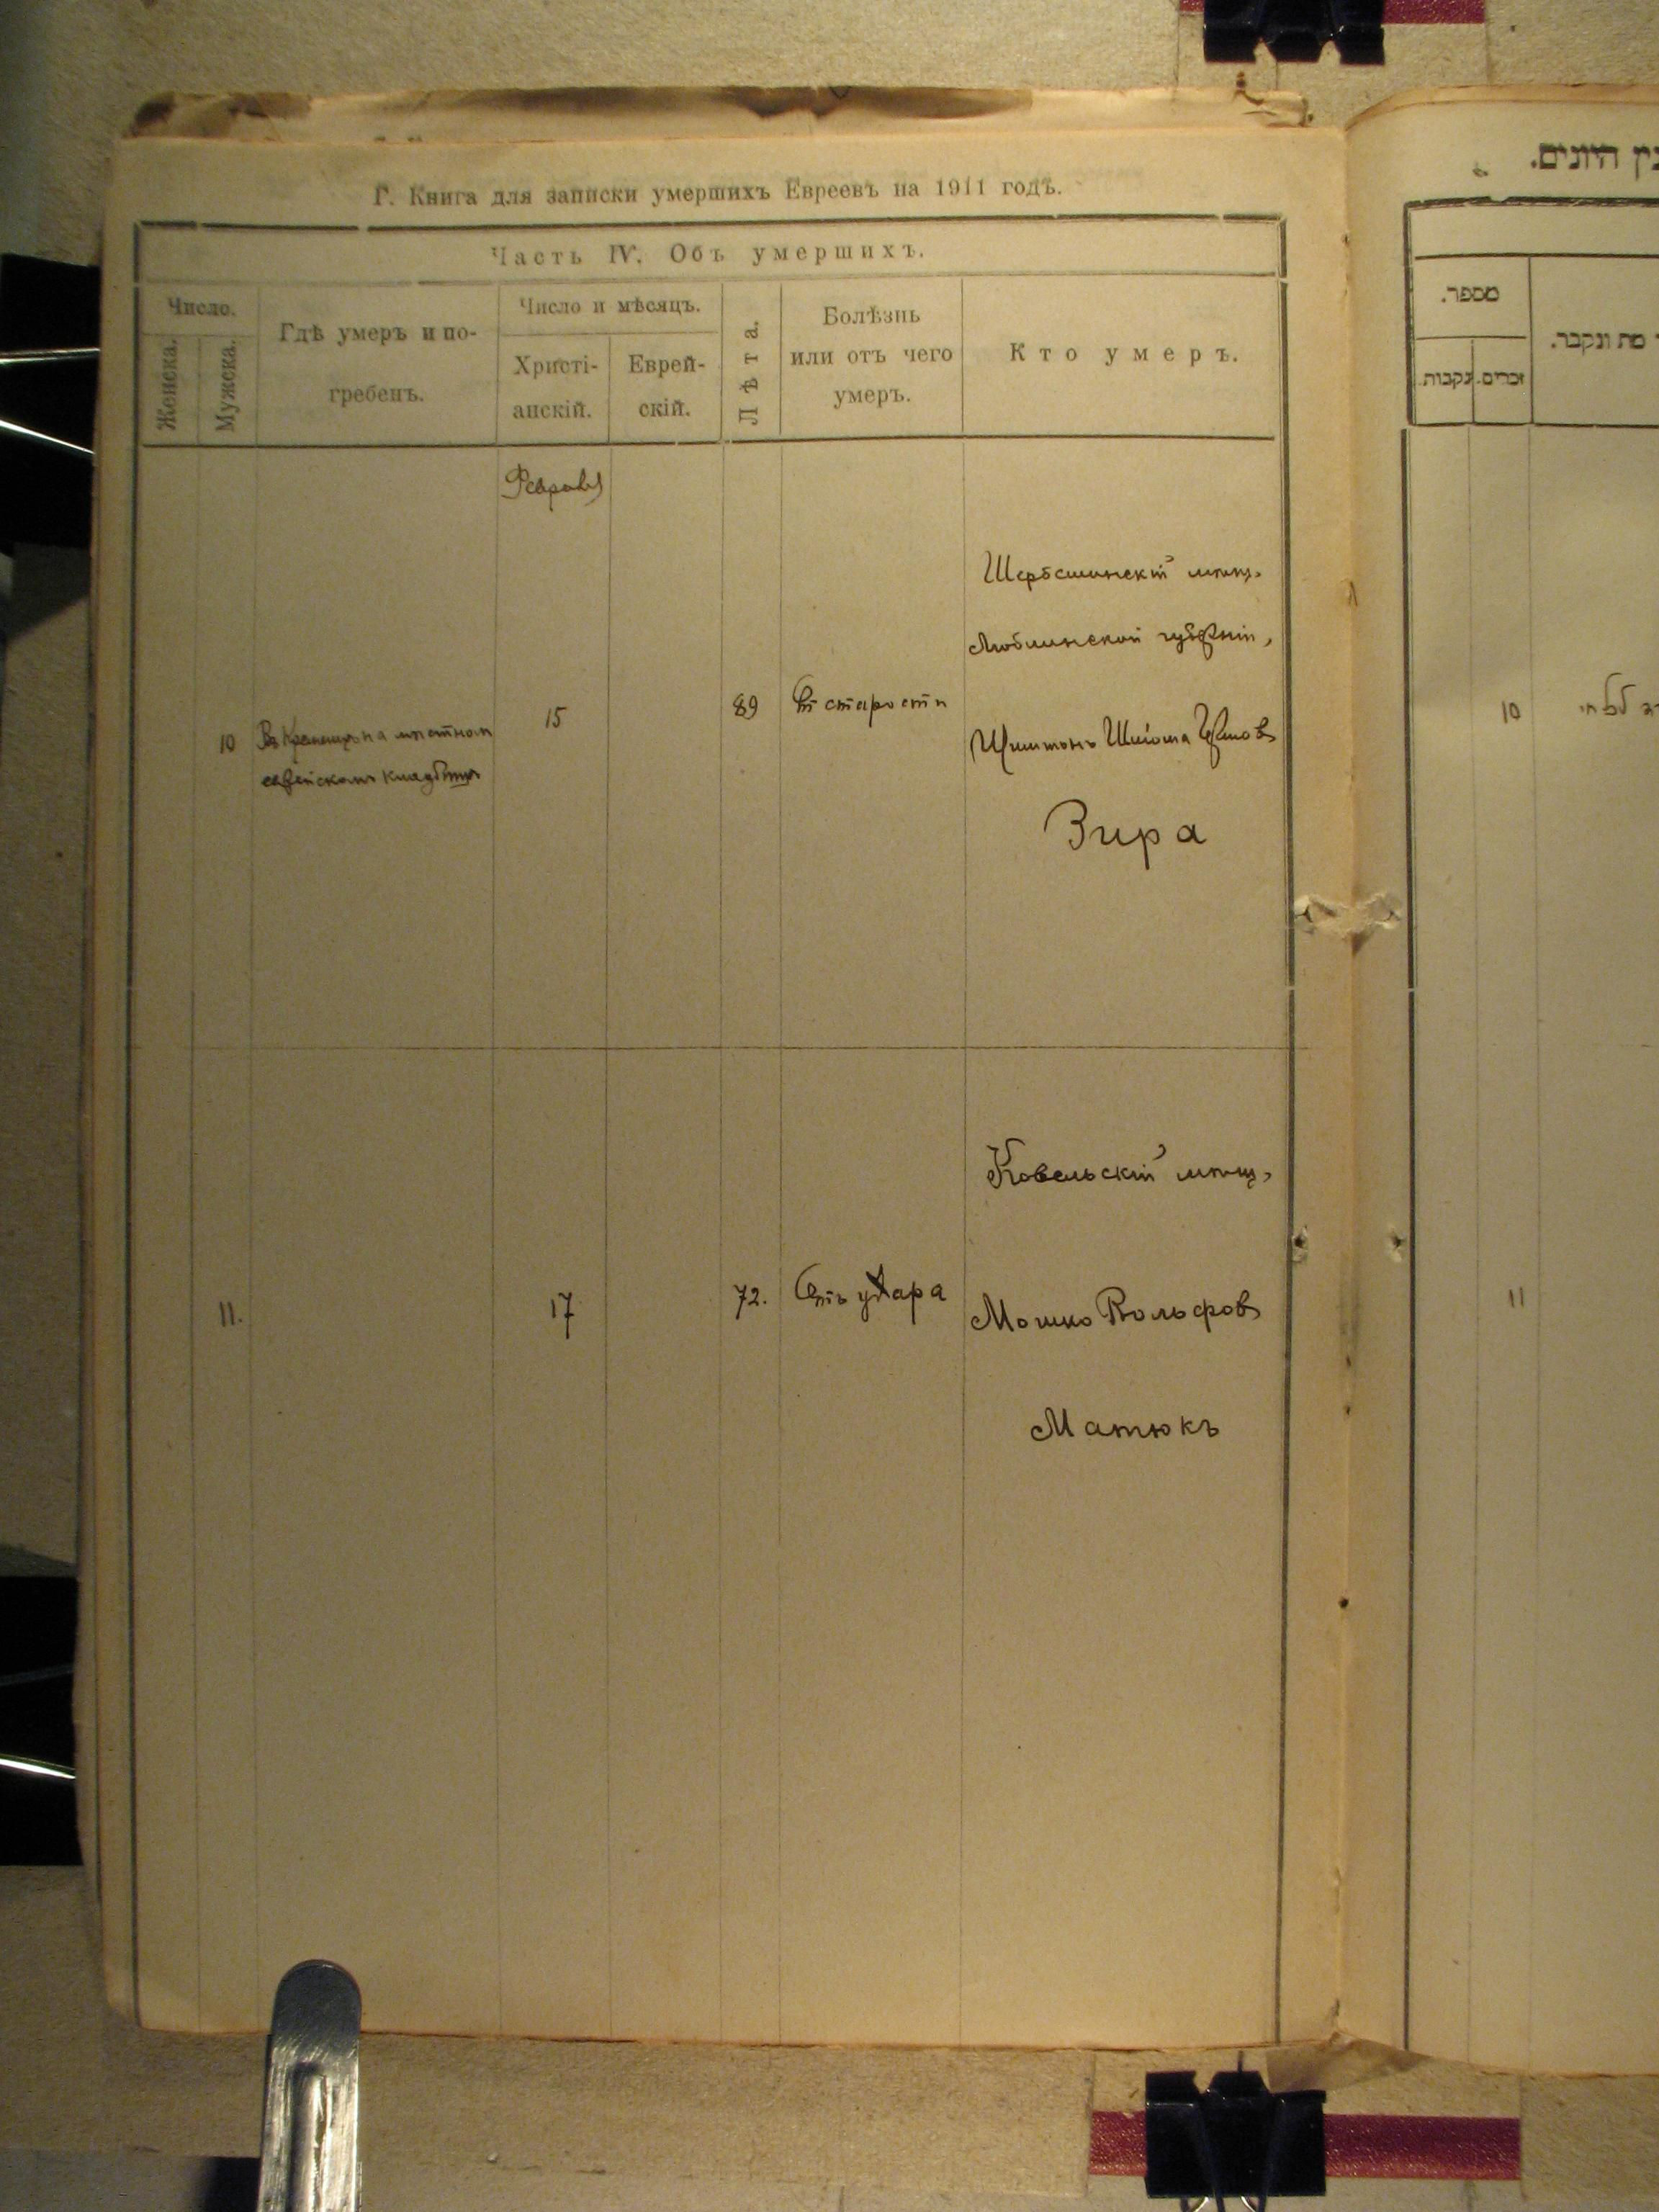 Г. Книга для записки умершихъ Евреевъ на 1911 годъ.
Часть IV. Объ умершихъ.
Число.
Женска.
Мужска.
Гдѣ умеръ и по-
гребенъ.
Число и мѣсяцъ.
Христі-
анскій.
Еврей-
скій.
Лѣта.
Болѣзнь
или отъ чего
умеръ.
Кто умеръ.
Февраль
10
на мѣстном
еврейском кладбищѣ
15
89
От старости
Щебешинскій мѣщ.
Люблинской губерніи,
Зира
11.
17
72.
Отъ удара
Ковельскій мѣщ.
Мошко Вольфовъ
Матюкъ
היונים.
מספר.
נקבות.
זכרים.
מת ונקבר.
10
11